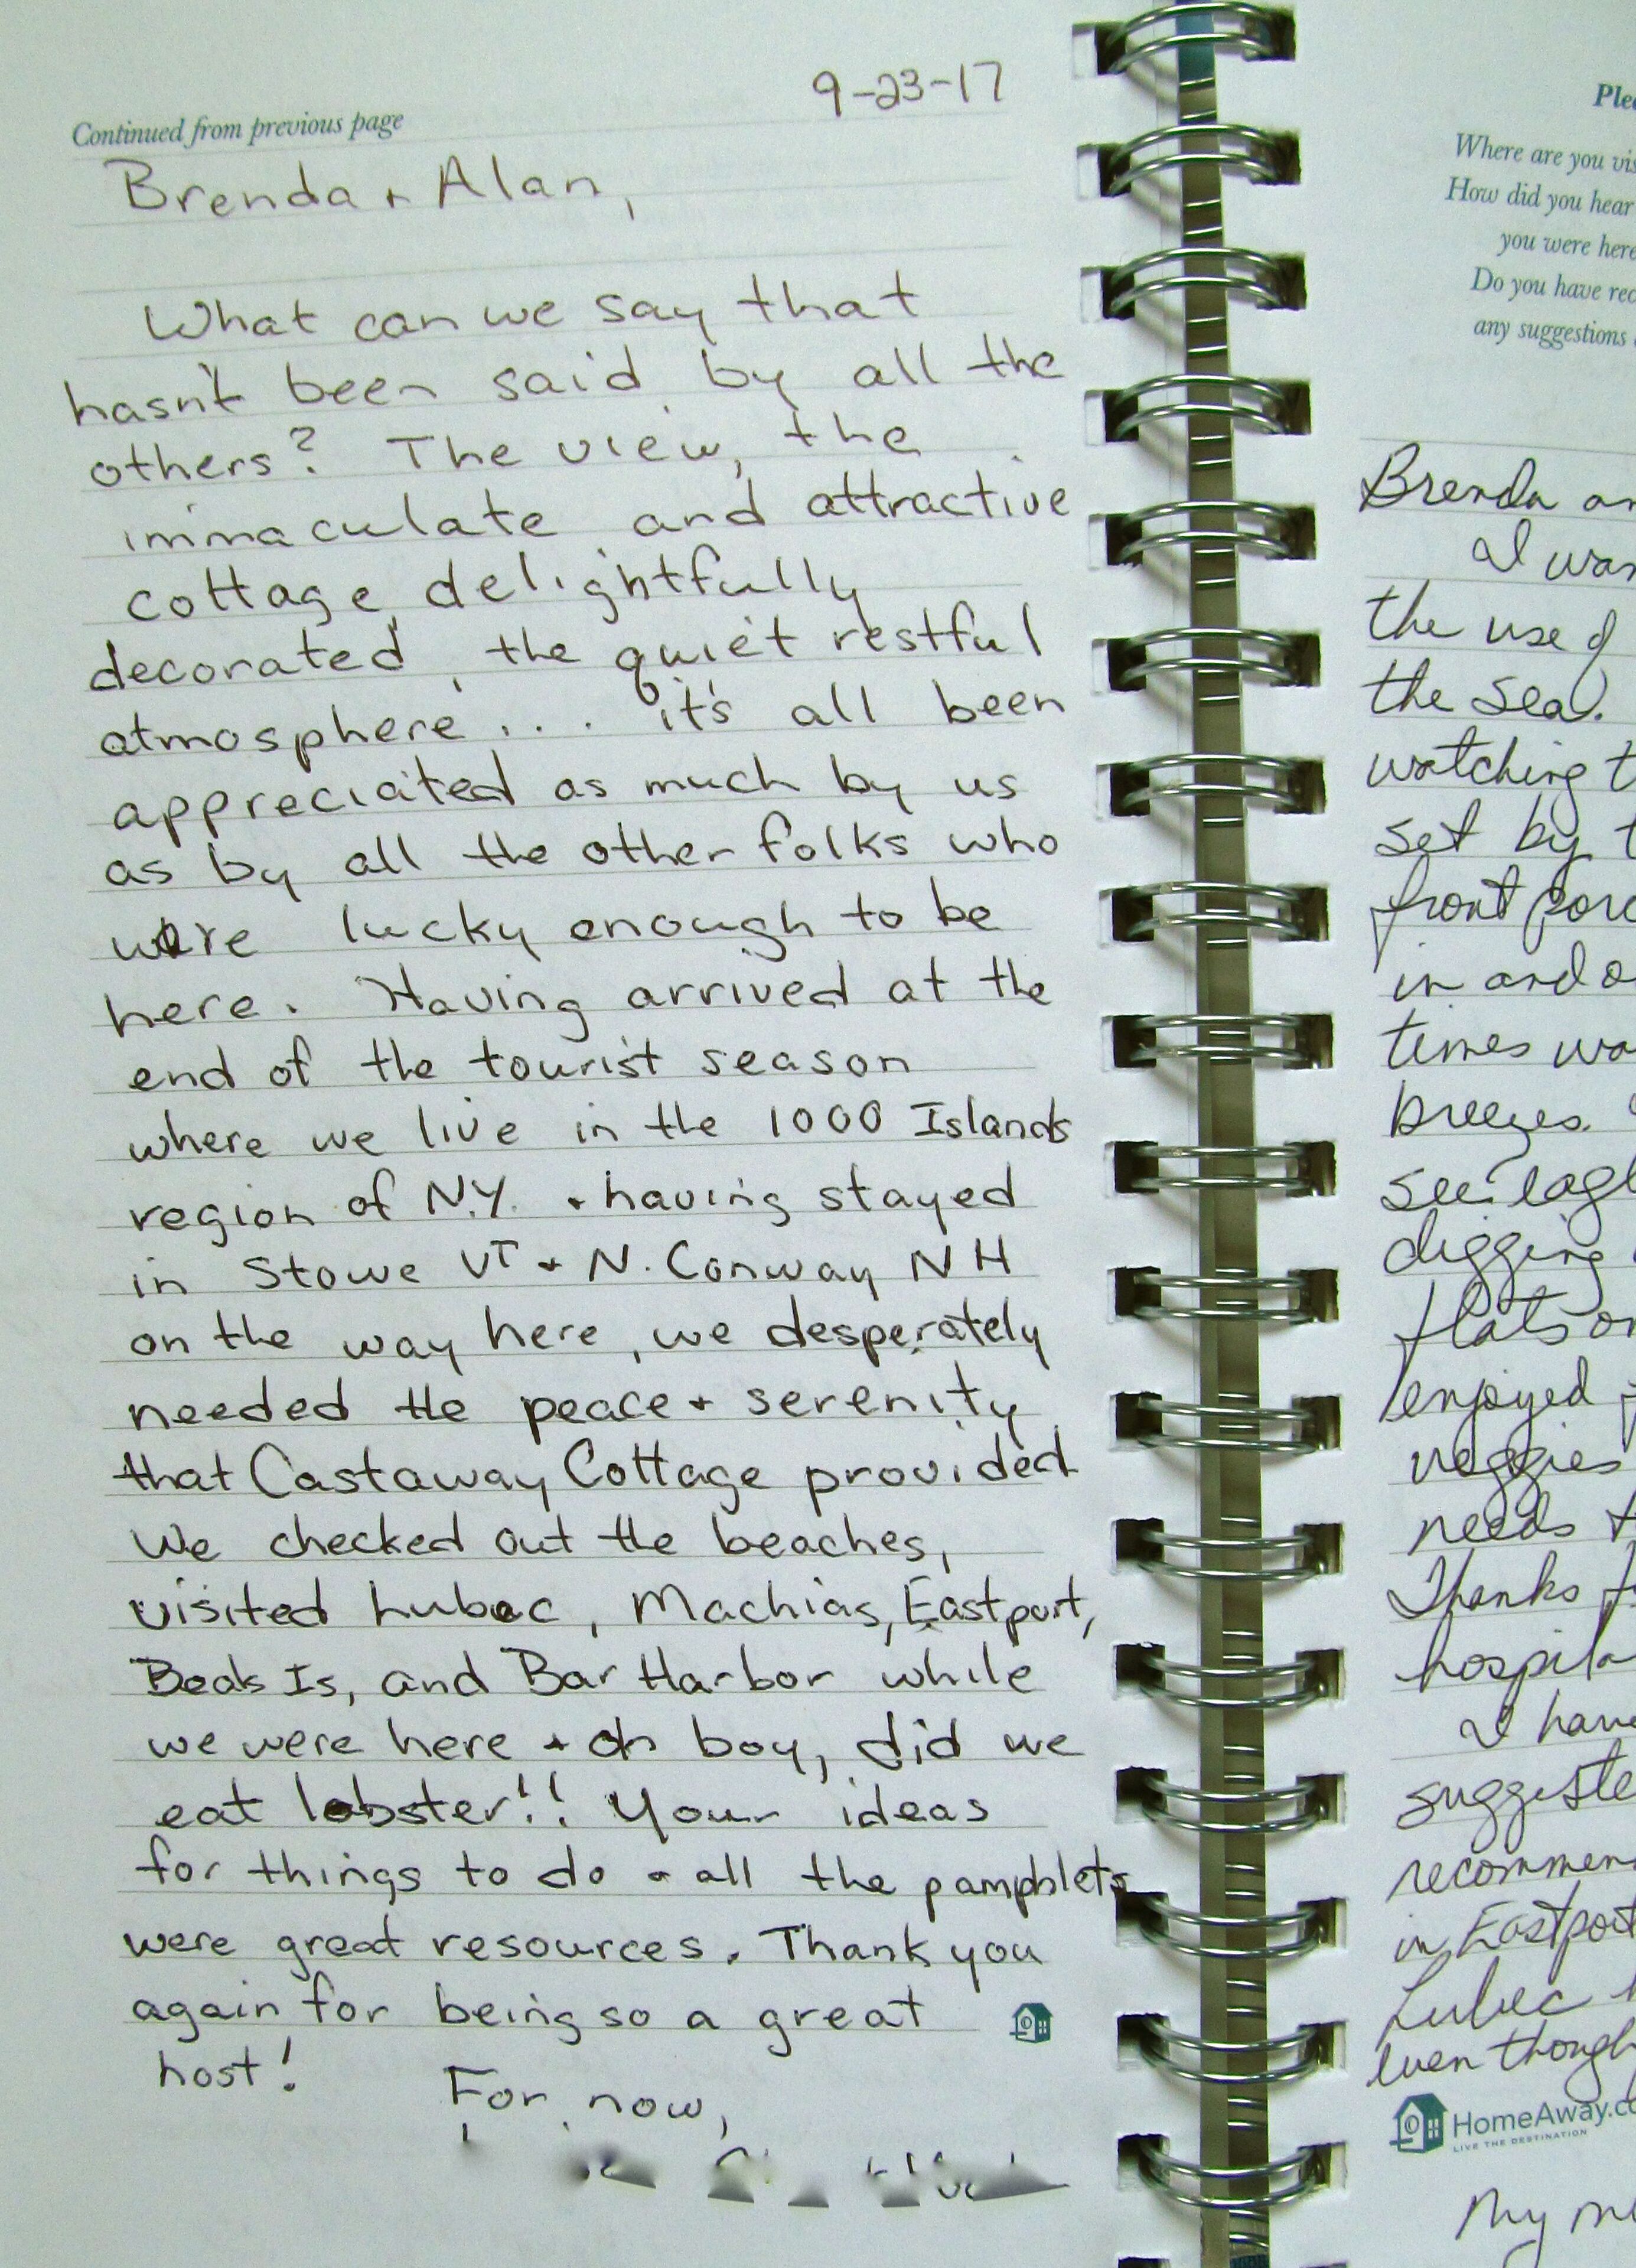 9-23-17
Continued from previous page
Brenda + Alan,
What can we say that
hasn't been said by all the
others? The view, the
immaculate and attractive
cottage delightfully
decorated, the quiet restful
atmosphere... it's all been
appreciated as much by us
as by all the other folks who
were lucky enough to be
here. Having arrived at the
end of the tourist season
where we live in the 1000 Islands
region of N.Y. + having stayed
in Stowe VT + N. Conway NH
on the way here, we desperately
needed the peace + serenity
that Castaway Cottage provided
We checked out the beaches,
visited Lubec, Machias, Eastport,
Beals Is, and Bar Harbor while
we were here + oh boy, did we
eat lobster!! Your ideas
for things to do + all the pamphlets
were great resources. Thank you
again for being so a great
host!
For now,
Where are you
How did you hear
you were here
Do you have
any suggestions
Brenda
I
the use of
the sea.
watching
set by
front
in and
times
breezes.
see
digging
flats
enjoyed
veggies
needs
Thanks
I have
in Eastport
Lubec
even though
HomeAway
LIVE THE DESTINATION
My